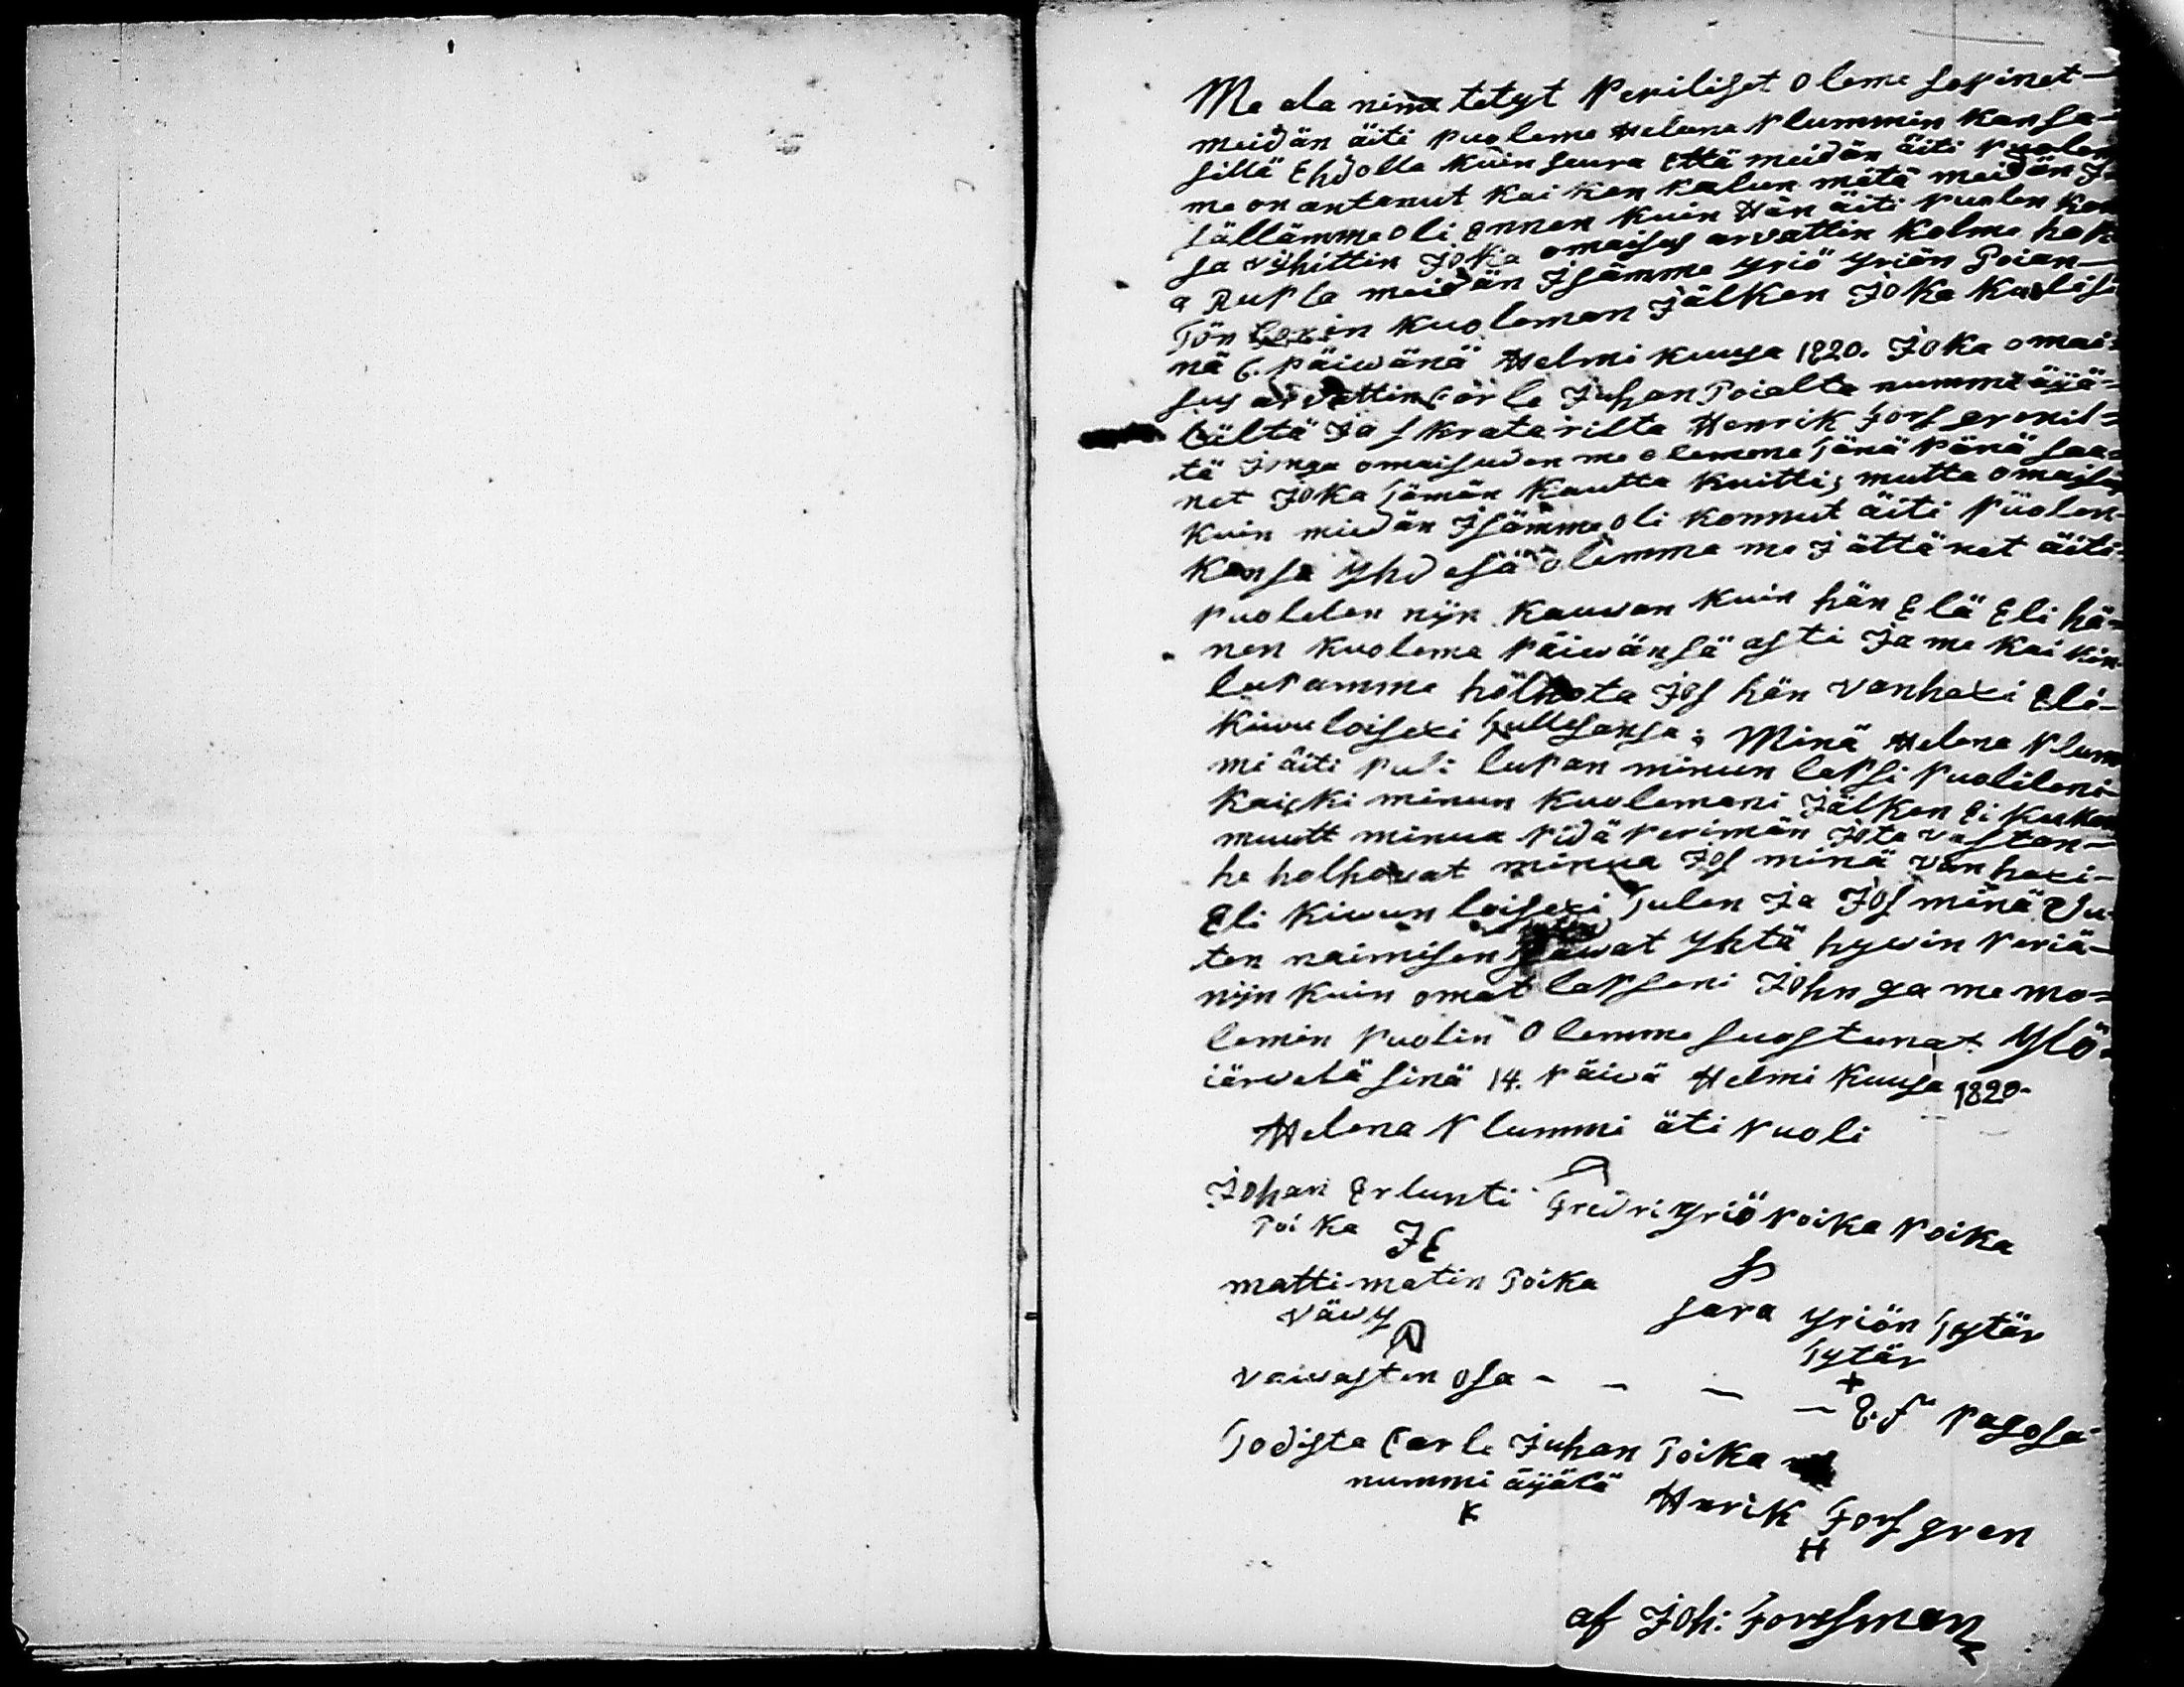 Me ala nimitetyt Periliset oleme sopinet-
meidän äiti puoleme Helena Plummin kansa-
sillä Ehdolla kuin seura Että meidän äiti puolem
me on antanut kaiken kalun mitä meidän J
sällämme oli Ennen kuin Hän äiti puolen kan
sa vijhittin Joka omaisus arvattin Kolme
a Rupla meidän Jsämme yriö yriön Poian-
kuoleman Jälken Joka kuolisi
nä 6. päiwänä Helmi kuusa 1820. Joka omai-
sus arvattin Carle Juhan Poialta nummi äijä-
lältä Ja skratarilta Henrik Forsgrenil-
tä Jonga omaisuden me olemme Tänä Pänä saa-
net Joka Tämän Kautta kuitti; mutta omaisus
kuin meidän Jsämme oli konnut äiti Puolen-
kansa yhdesä olemme me Jättänet äiti-
puolelen nijn kauwan kuin hän Elä Eli hä-
nen kuolema Päiwänsä asti Ja me kaikin
lupamme hölhota Jos hän vanhaxi Eli-
kiwuloisexi Tullesansa; Minä Helena Plum
mi äiti puli lupan minun lapsi puolileni-
kaikki minun kuolemani Jälken Ei kukan
muutt minua Pidä Perimän Jota vastan-
he holhowat minua Jos minä vanhaxi-
Eli kiwun loisexi Tulen Ja Jos minä Vu-
ten naimisen yhtä hywin Periä-
nijn kuin omat lapseni Johnga me mo-
lemin puolin olemme suostunat. Ylö-
järwelä sinä 14. Päiwä Helmi kuusa 1820-
Helena Plummi äti Puoli
Johan Erlunti Fredri yriö Poika Poika
Poika JE
matti matin Poika
väwy
sara yriön Tytär
Tytär
+
vaiwasten osa - - - -
Todista Carle Juhan Poika
nummi äijälä
K
Henrik Forsgren
H
af Joh: Forssman